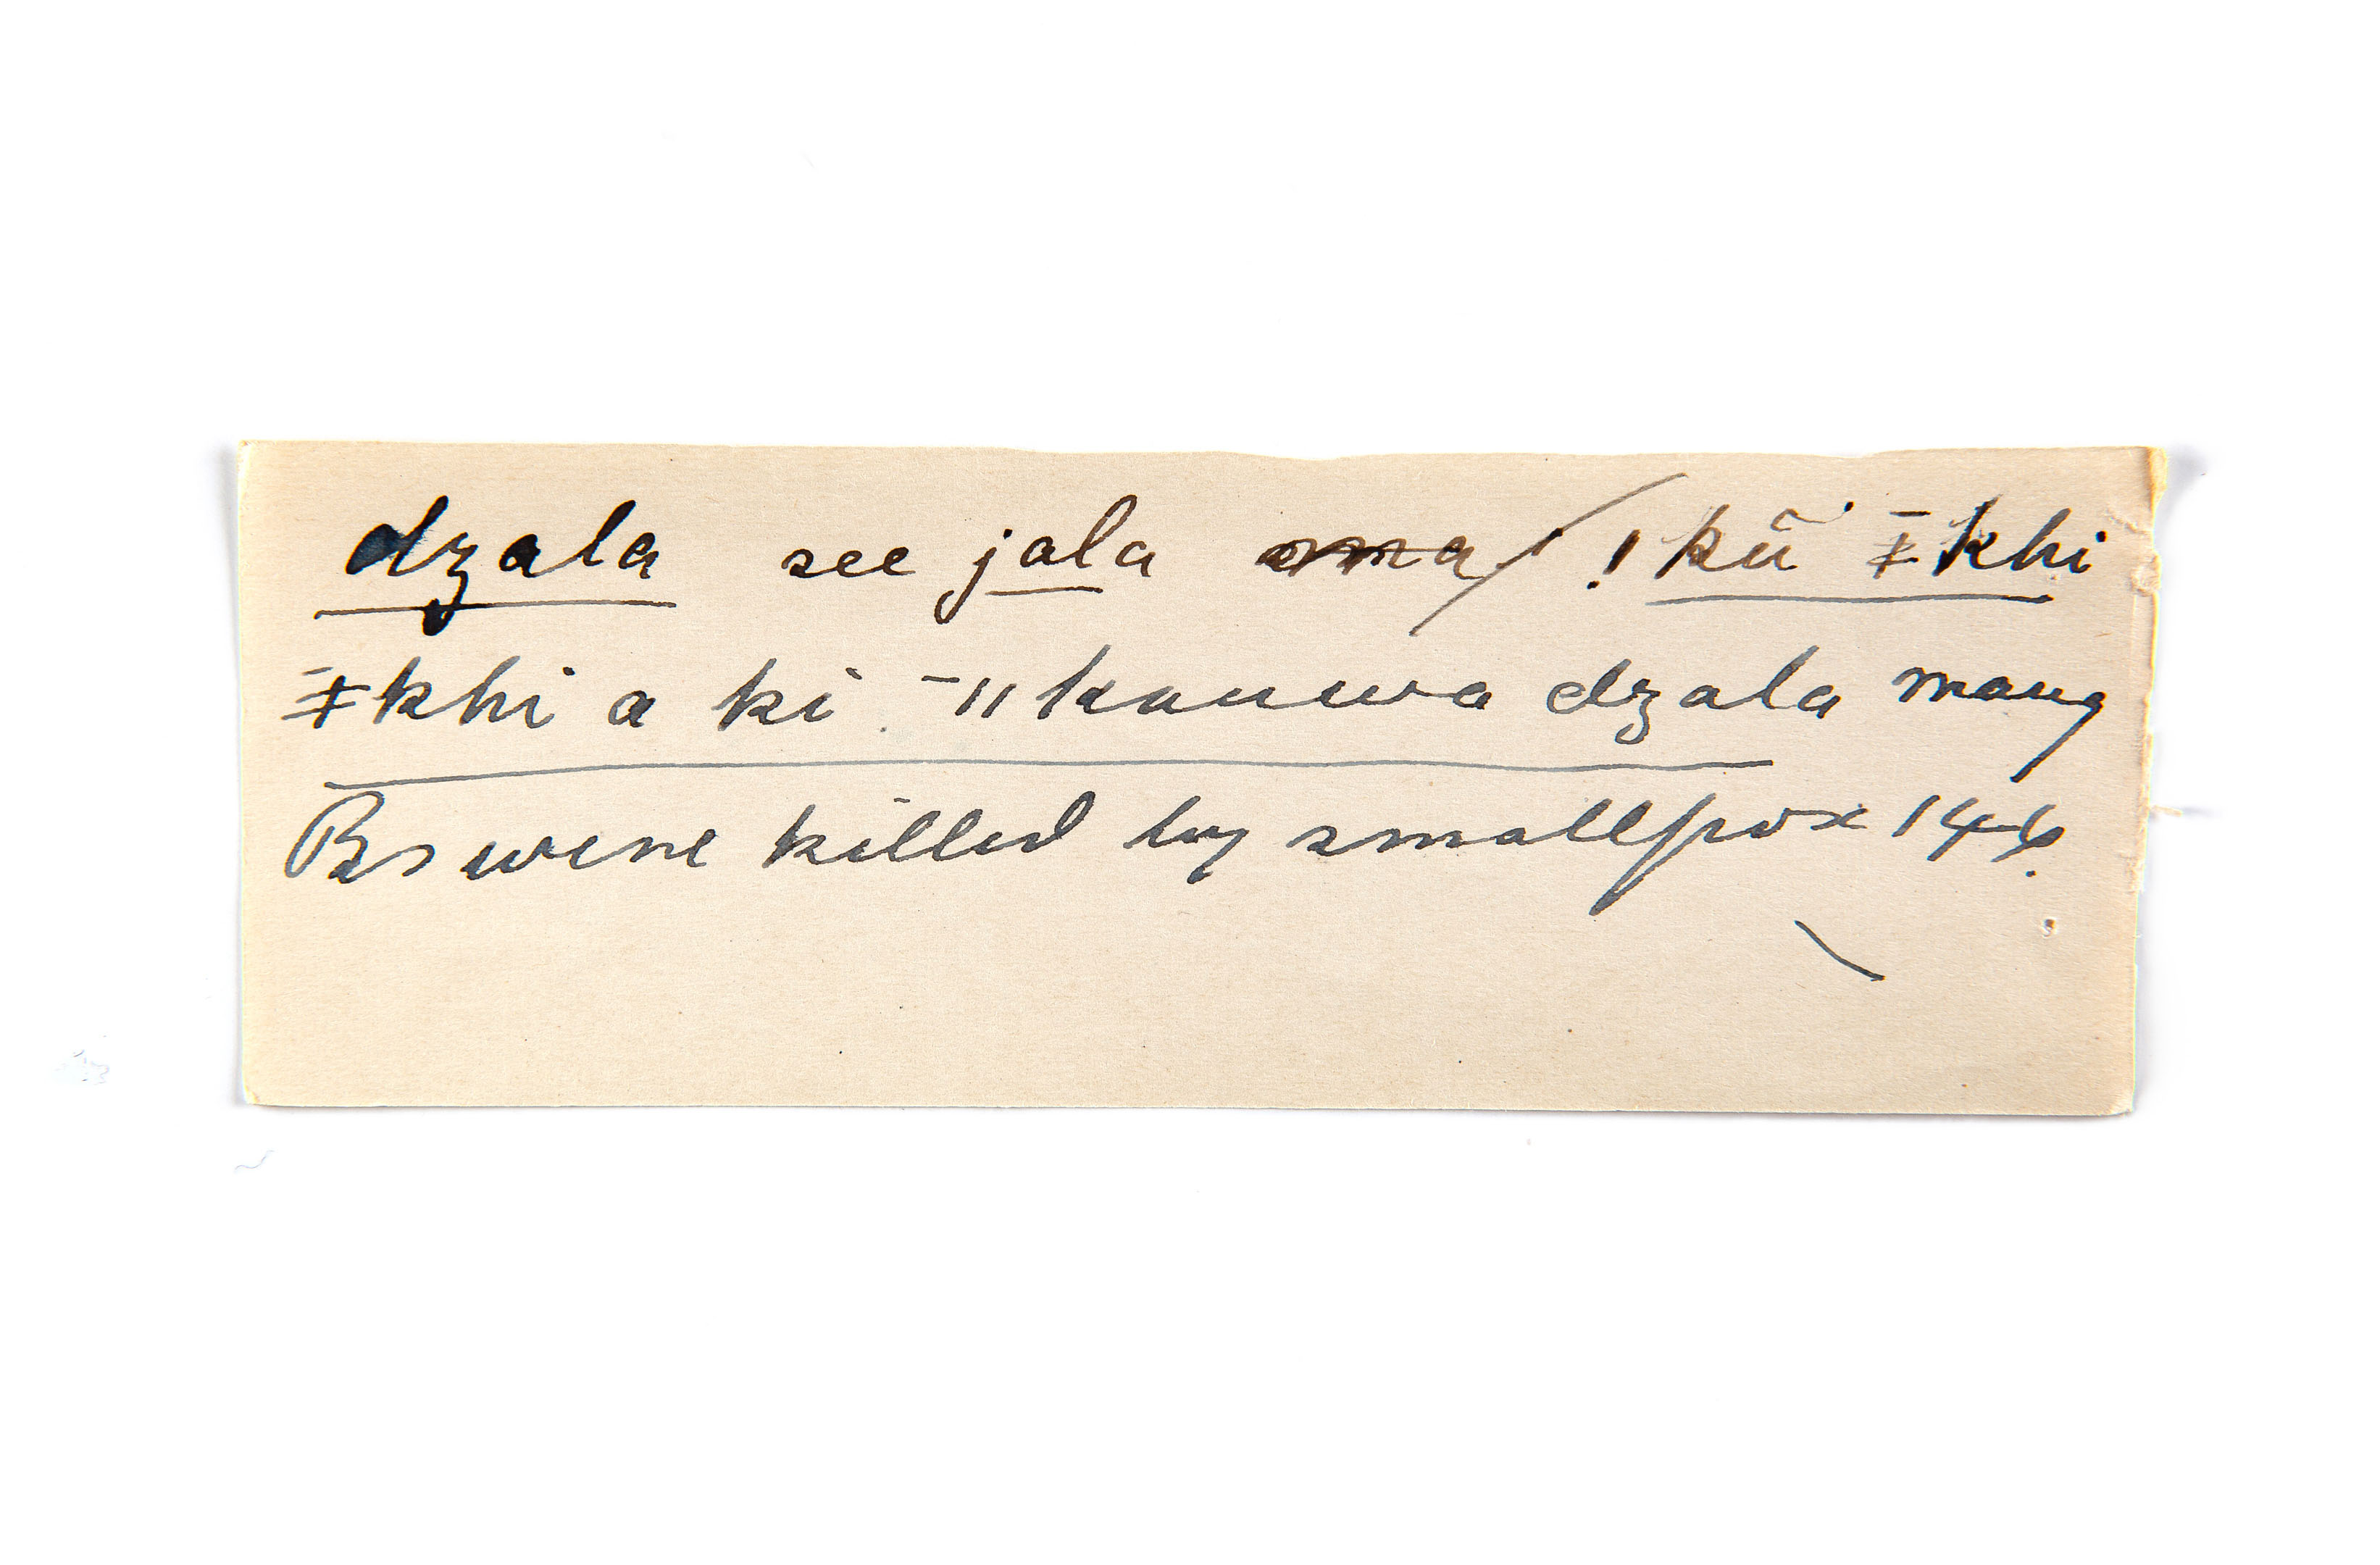 dzala see jala ! kũ ˉǂkhi
ˉǂkhi a ki ˉǁkauwa dzala many
Bs were killed by smallpox 146.